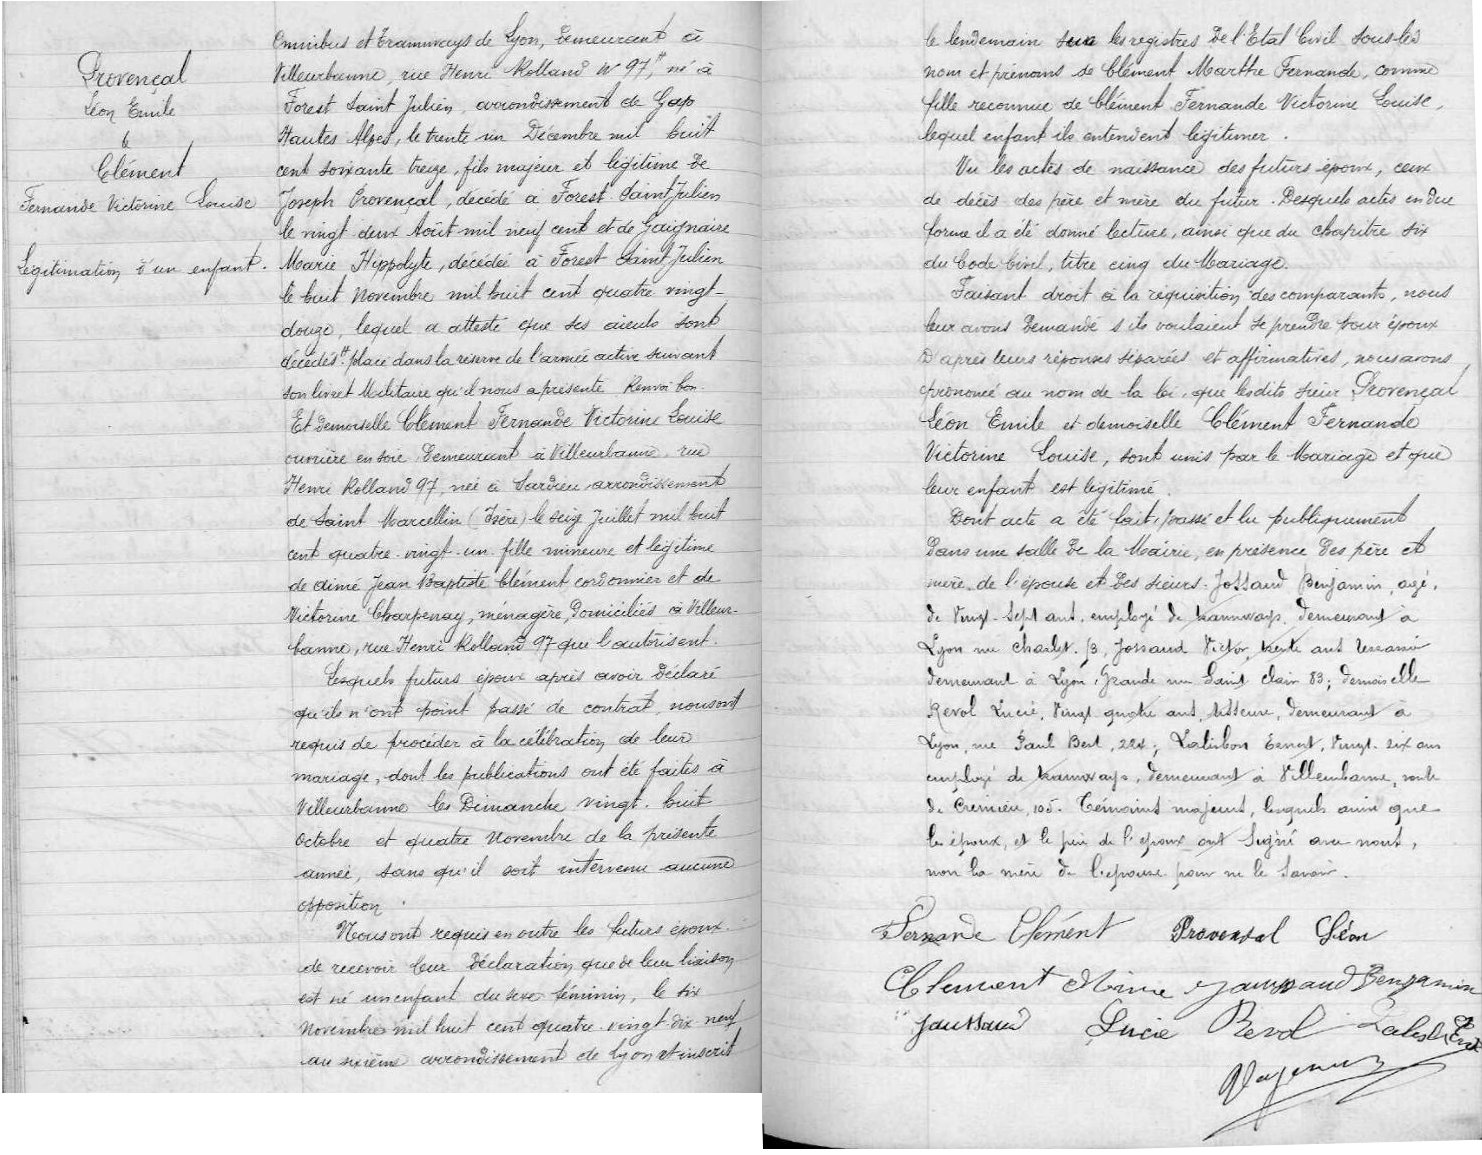 Provençal
Léon Emile
&
Clément
Fernande Victorine Louise
Légitimation d'un enfant.
Omnibus et Tramways de Lyon, Demeurant à
Villeurbanne, rue Henri Rolland N° 97, né à
Forest Saint Julien, arrondissement de Gap
Hautes Alpes, le trente un Décembre mil huit
cent soixante treize, fils majeur et légitime de
Joseph Provençal, décédé à Forest Saint Julien
le vingt deux Août mil neuf cent et de Gaignaire
Marie Hippolyte, décédée à Forest Saint Julien
le huit Novembre mil huit cent quatre vingt-
douze, lequel a attesté que ses aïeuls sont
décédés placé dans la réserve de l'armée active suivant
son livret Militaire qu'il nous a présenté Renvoi bon.
Et demoiselle Clément Fernande Victorine Louise
ouvrière en soie Demeurant à Villeurbanne, rue
Henri Rolland 97, née à Sardieu arrondissement
de Saint Marcellin (Isère) le seize Juillet mil huit
cent quatre-vingt-un fille mineure et légitime
de aimé Jean Baptiste Clément cordonnier et de
Victorine Charpenay, ménagère, Domiciliés à Villeur-
banne, rue Henri Rolland 97 qui l'autorisent.
Lesquels futurs époux après avoir Déclaré
qu'ils n'ont point passé de contrat, nous ont
requis de procéder à la célébration de leur
mariage, dont les publications ont été faites à
Villeurbanne les Dimanche vingt-huit
Octobre et quatre Novembre de la présente
année, sans qu'il soit intervenu aucune
opposition.
Nous ont requis en outre les futurs époux
de recevoir leur Déclaration que de leur liaison
est né un enfant du sexe féminin, le six
Novembre mil huit cent quatre-vingt-dix neuf
au sixième arrondissement de Lyon et inscrit
le lendemain sur les registres De l'Etat Civil sous les
nom et prénoms de Clément Marthe Fernande, comme
fille reconnue de Clément Fernande Victorine Louise,
lequel enfant ils entendent légitimer.
Vu les actes de naissance des futurs époux, ceux
de décès des père et mère du futur. Desquels actes en due
forme il a été donné lecture, ainsi que du chapitre six
du Code Civil, titre cinq du Mariage.
Faisant droit à la réquisition des comparants, nous
leur avons Demandé s'ils voulaient se prendre pour époux
D'après leurs réponses séparées et affirmatives, nous avons
prononcé au nom de la loi, que lesdits sieur Provençal
Léon Emile et demoiselle Clément Fernande
Victorine Louise, sont unis par le Mariage et que
leur enfant est légitimé.
Dont acte a été fait, passé et lu publiquement
Dans une salle De la Mairie, en présence Des père et
mère de l'épouse et Des sieurs Jossaud Benjamin, agé,
de Vingt-Sept ans, employé de tramways, demeurant à
Lyon rue Chazlet, 13, Jossaud Victor, trente ans
demeurant à Lyon, Grande rue Saint Clair 83; demoiselle
Revol Lucie, Vingt quatre ans, tisseuse, demeurant à
Lyon, rue Paul Bert, 224; Ernest, Vingt-six ans
employé de tramways, demeurant à Villeurbanne, route
de Cremieu, 105. Témoins majeurs, lesquels ainsi que
les époux, et le père de l'épouse ont Signé avec nous,
non la mère de l'épouse pour ne le Savoir.
Fernande Clément Provensal Léon
Clement Aimé Jaussaud Benjamin
Jaussaud Lucie Revol